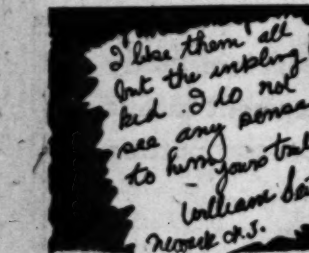 I like them all
but the inkling
kid. I do not
see any sense
to him
yours
William
Newark N.J.